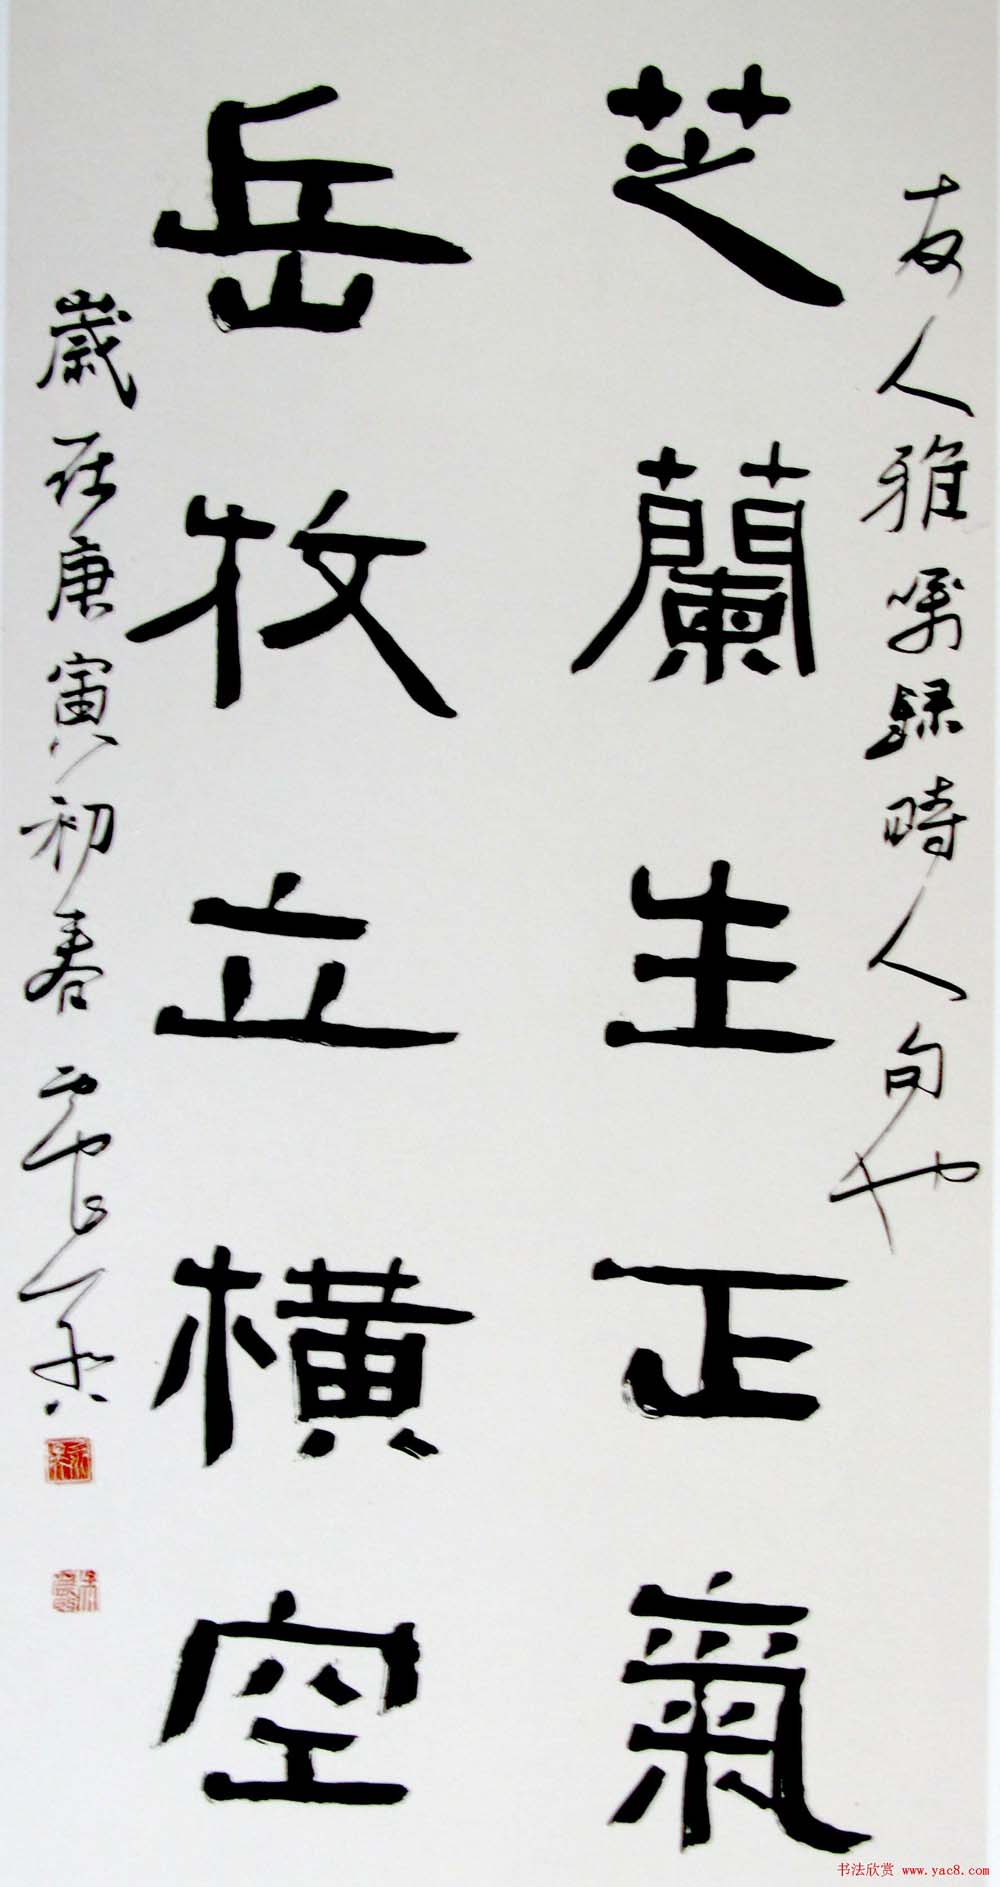 友人雅嘱錄時人句也
芝蘭生正氣
岳牧立横空
歲在庚寅初春
书法欣赏 www.yac8.com